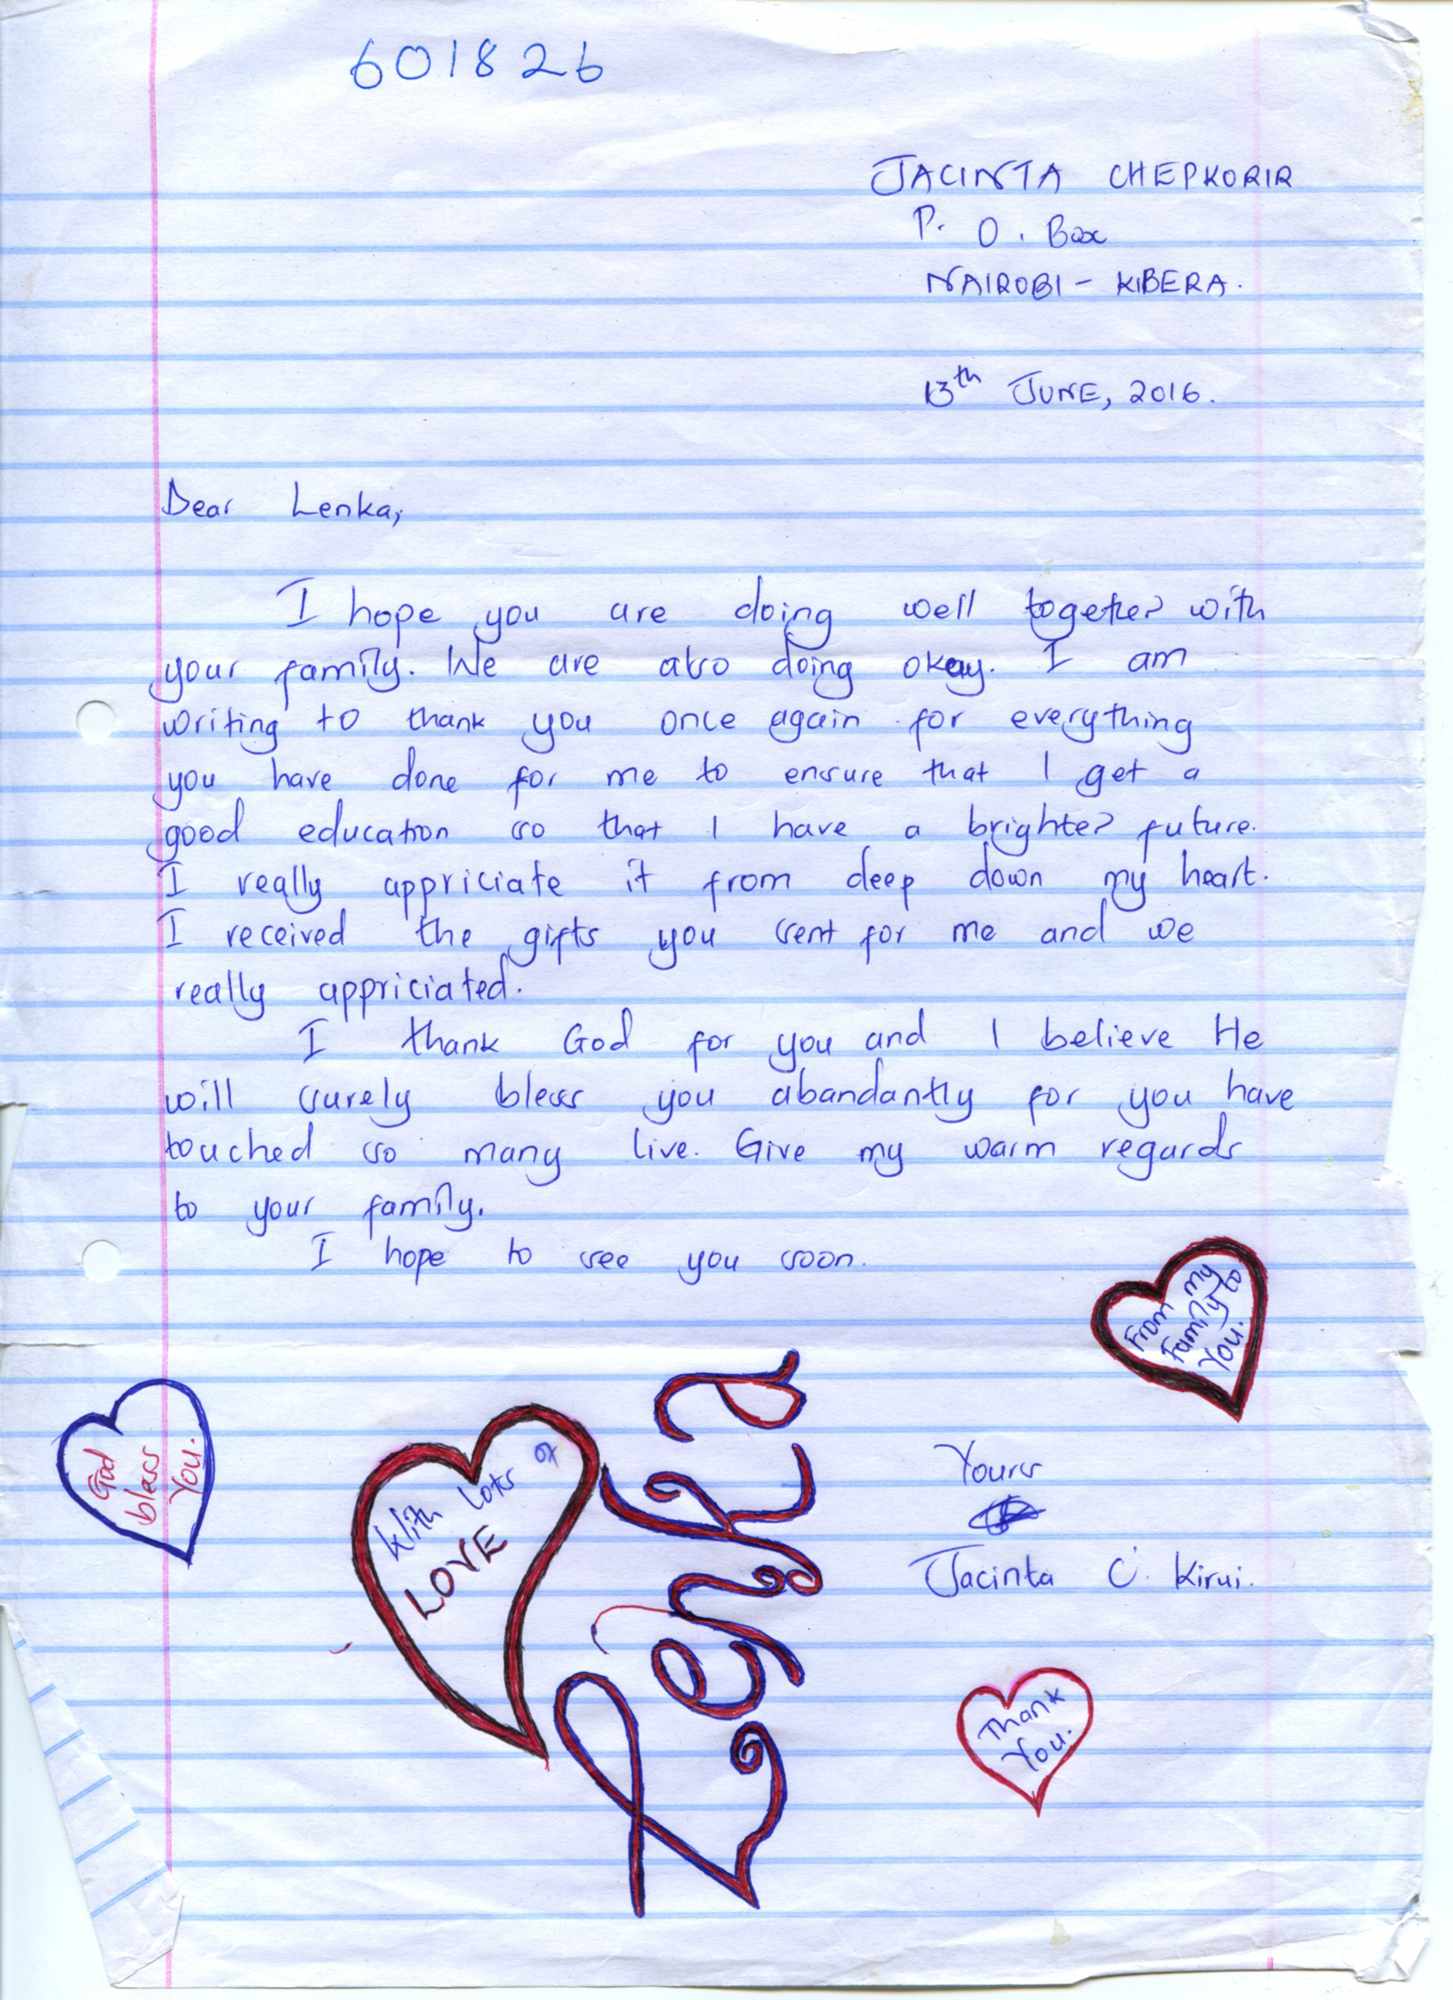 601826
JACINTA CHEPKORIR
P. O. Box
NAIROBI - KIBERA.
13th JUNE, 2016.
Dear Lenka,
I hope you are doing well together with
your family. We are also doing okay. I am
writing to thank you once again for everything
you have done for me to ensure that I get a
good education so that I have a brighter future.
I really appriciate it from deep down my heart.
I received the gifts you sent for me and we
really appriciated.
I thank God for you and I believe He
will surely bless you abandantly for you have
touched so many live. Give my warm regards
to your family.
I hope to see you soon.
From my
Family to
You.
God
bless
You.
With Lots of
LOVE
Lenka
Yours
Jacinta C. Kirui.
Thank
You.